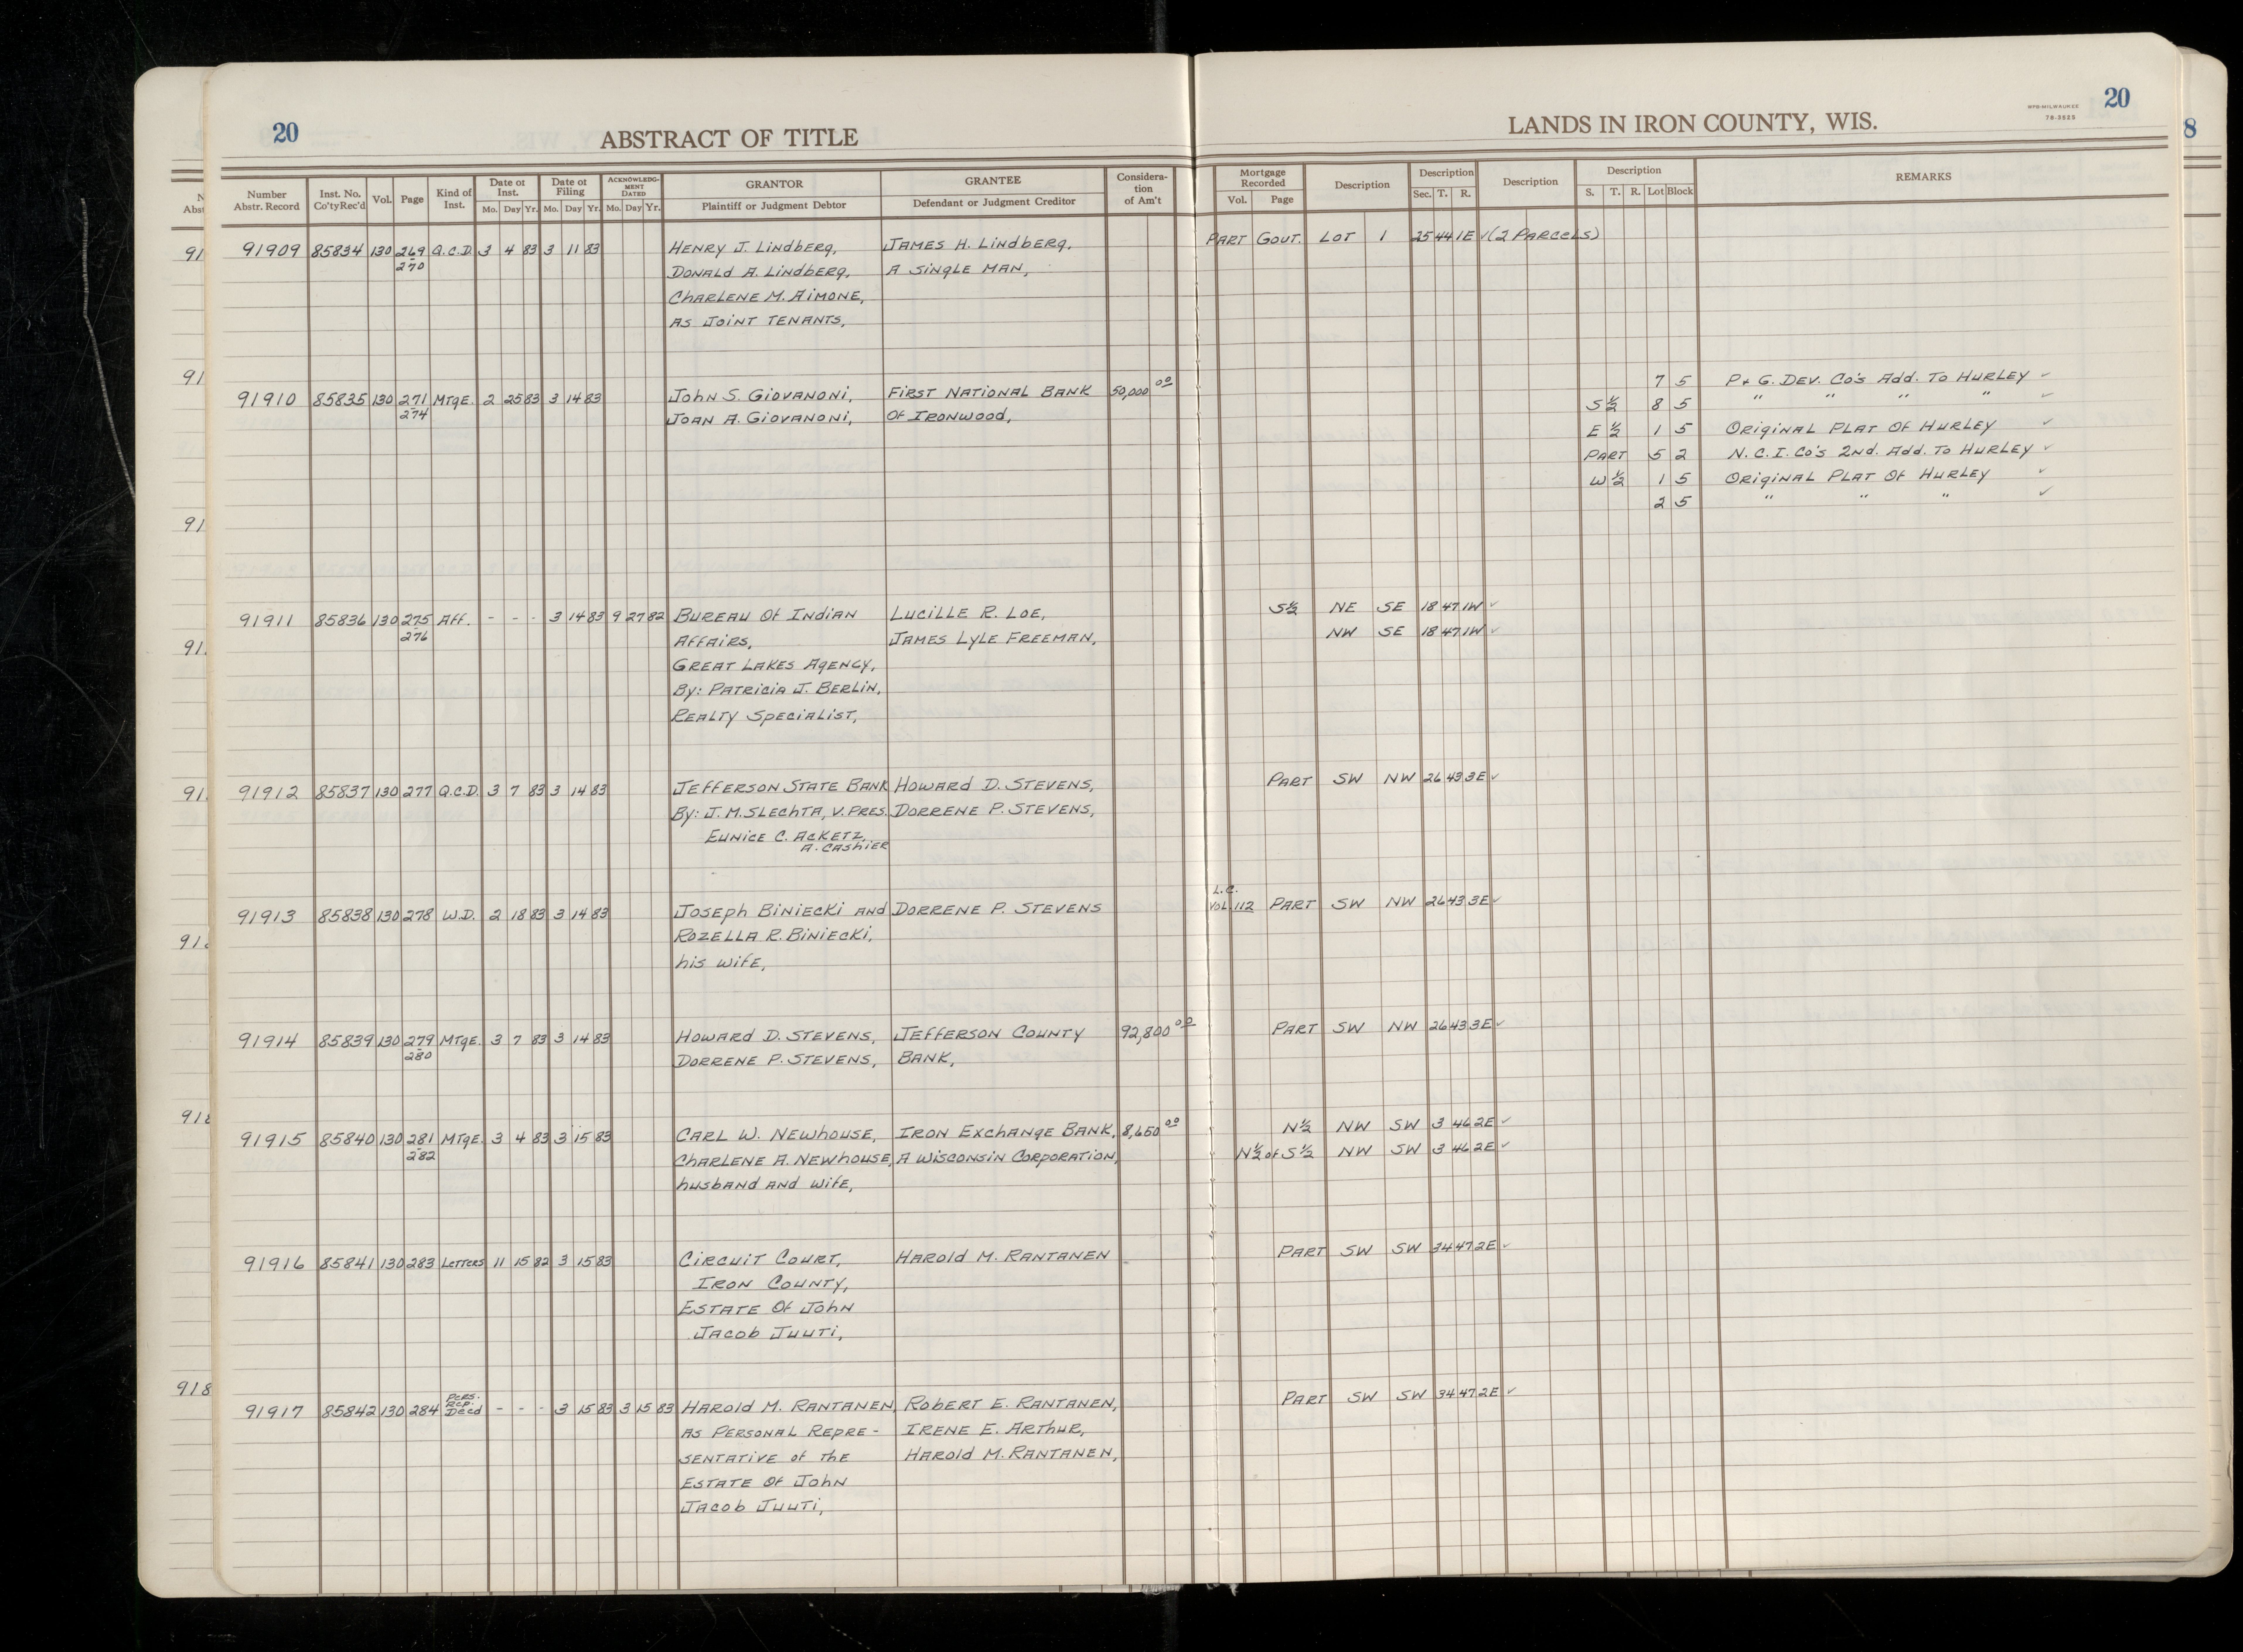 20 ABSTRACT OF TITLE
LANDS IN IRON COUNTY, WIS. 20
WPB-MILWAUKEE
78-3525
8
Number Abstr. Record | Inst. No. Co'ty Rec'd | Vol. | Page | Kind of Inst. | Date of Inst. Mo. Day Yr. | Date of Filing Mo. Day Yr. | ACKNOWLEDGMENT DATED Mo. Day Yr. | GRANTOR Plaintiff or Judgment Debtor | GRANTEE Defendant or Judgment Creditor | Consideration of Am't | Mortgage Recorded Vol. Page | Description | Description Sec. T. R. | Description | Description S. T. R. Lot Block | REMARKS
91909 85834 130 269 Q.C.D. 3 4 83 3 11 83 HENRY J. LINDBERG, JAMES H. LINDBERG, PART GOVT. LOT 1 25 44 1E ✓ (2 PARCELS)
270 DONALD A. LINDBERG, A SINGLE MAN,
CHARLENE M. AIMONE,
AS JOINT TENANTS,
7 5 P & G. DEV. CO'S ADD. TO HURLEY ✓
91910 85835 130 271 MTGE. 2 25 83 3 14 83 JOHN S. GIOVANONI, FIRST NATIONAL BANK 50,000 00 S 1/2 8 5 " " " " ✓
274 JOAN A. GIOVANONI, OF IRONWOOD, E 1/2 1 5 ORIGINAL PLAT OF HURLEY ✓
PART 5 2 N.C.I. CO'S 2ND. ADD. TO HURLEY ✓
W 1/2 1 5 ORIGINAL PLAT OF HURLEY ✓
2 5 " " " ✓
91911 85836 130 275 AFF. - - - 3 14 83 9 27 82 BUREAU OF INDIAN LUCILLE R. LOE, S1/2 NE SE 18 47 1W ✓
276 AFFAIRS, JAMES LYLE FREEMAN, NW SE 18 47 1W ✓
GREAT LAKES AGENCY,
BY: PATRICIA J. BERLIN,
REALTY SPECIALIST,
91912 85837 130 277 Q.C.D. 3 7 83 3 14 83 JEFFERSON STATE BANK HOWARD D. STEVENS, PART SW NW 26 43 3E ✓
BY: J.M. SLECHTA, V. PRES. DORRENE P. STEVENS,
EUNICE C. ACKETZ,
A. CASHIER
91913 85838 130 278 W.D. 2 18 83 3 14 83 JOSEPH BINIECKI AND DORRENE P. STEVENS L.C. VOL 112 PART SW NW 26 43 3E ✓
ROZELLA R. BINIECKI,
HIS WIFE,
91914 85839 130 279 MTGE. 3 7 83 3 14 83 HOWARD D. STEVENS, JEFFERSON COUNTY 92,800 00 PART SW NW 26 43 3E ✓
280 DORRENE P. STEVENS, BANK,
91915 85840 130 281 MTGE. 3 4 83 3 15 83 CARL W. NEWHOUSE, IRON EXCHANGE BANK, 8,650 00 N1/2 NW SW 3 46 2E ✓
282 CHARLENE A. NEWHOUSE, A WISCONSIN CORPORATION, N1/2 of S1/2 NW SW 3 46 2E ✓
HUSBAND AND WIFE,
91916 85841 130 283 LETTERS 11 15 82 3 15 83 CIRCUIT COURT, HAROLD M. RANTANEN PART SW SW 34 47 2E ✓
IRON COUNTY,
ESTATE OF JOHN
JACOB JUUTI,
91917 85842 130 284 PERS. REP. DEED - - - 3 15 83 3 15 83 HAROLD M. RANTANEN, ROBERT E. RANTANEN, PART SW SW 34 47 2E ✓
AS PERSONAL REPRE- IRENE E. ARTHUR,
SENTATIVE OF THE HAROLD M. RANTANEN,
ESTATE OF JOHN
JACOB JUUTI,